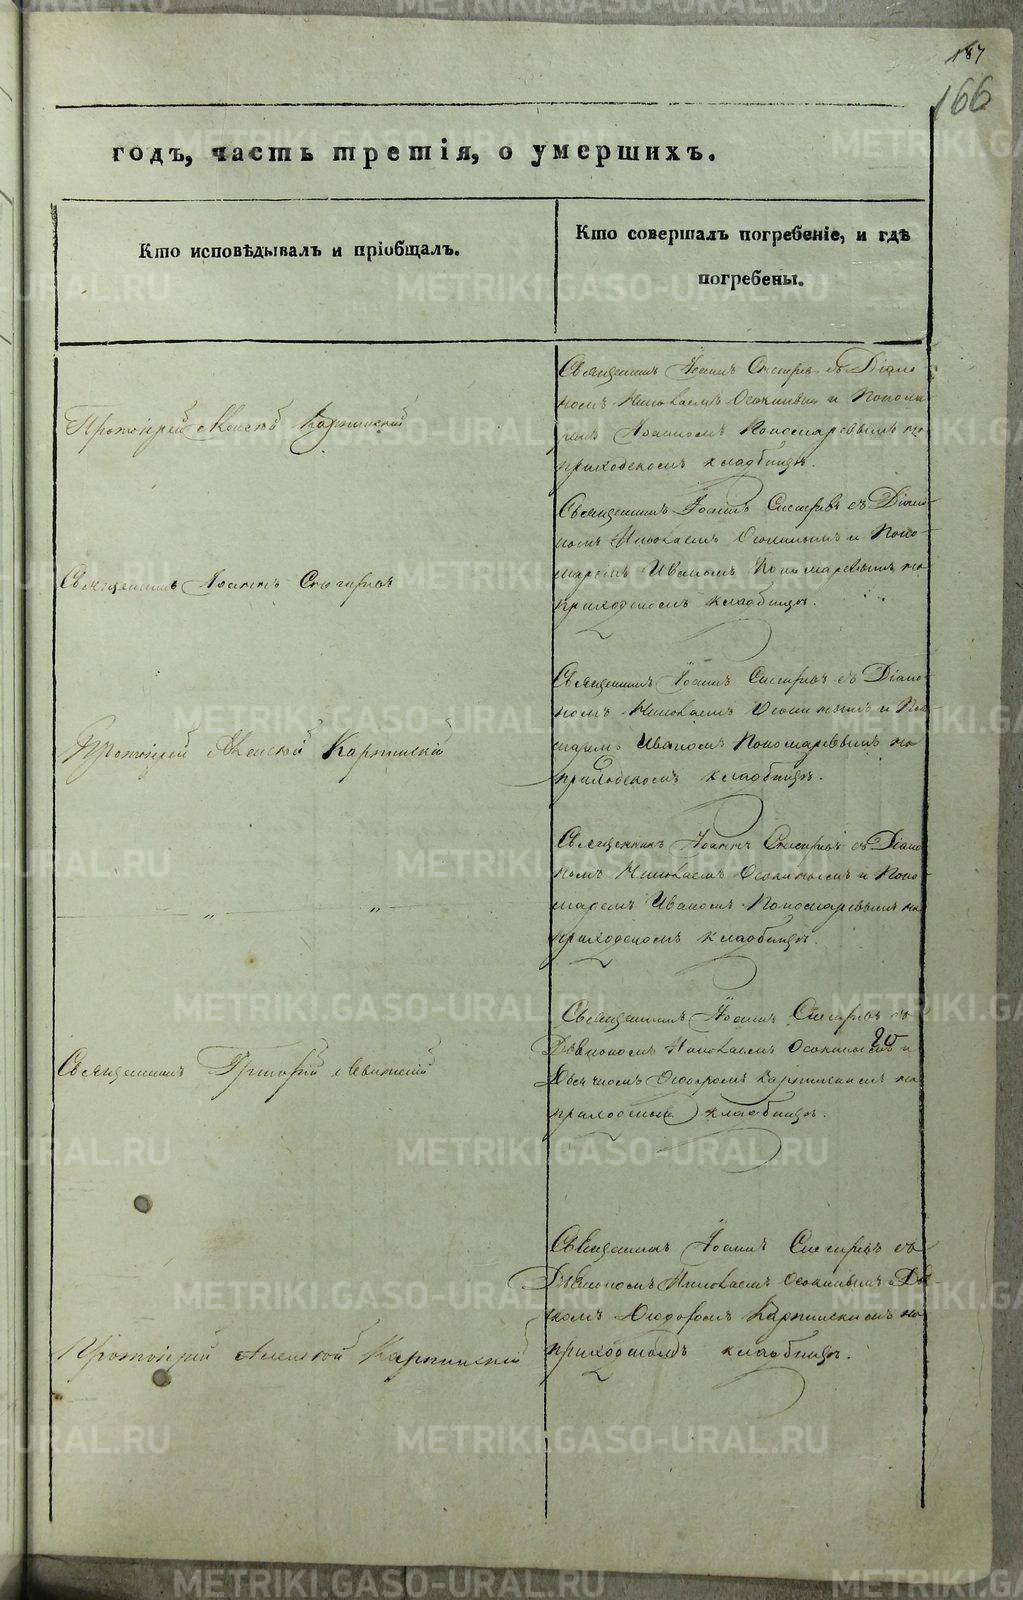 187
166
годъ, часть третія, о умершихъ.
Кто исповѣдывалъ и пріобщалъ.
Кто совершалъ погребеніе, и гдѣ
погребены.
Священникъ Іоаннъ Снегиревъ съ Діако-
номъ Николаемъ Осокинымъ и Понома-
ремъ Іоанномъ Пономаревымъ на
приходскомъ кладбищѣ.
Протоіерей Алексѣй Карпинскій
Священникъ Іоаннъ Снегиревъ съ Діако-
номъ Николаемъ Осокинымъ и Поно-
маремъ Иваномъ Пономаревымъ на
приходскомъ кладбищѣ.
Священникъ Іоаннъ Снегиревъ
Священникъ Іоаннъ Снегиревъ съ Діако-
номъ Николаемъ Осокинымъ и Поно-
маремъ Иваномъ Пономаревымъ на
приходскомъ кладбищѣ.
Протоіерей Алексѣй Карпинскій
Священникъ Іоаннъ Снегиревъ съ Діако-
номъ Николаемъ Осокинымъ и Поно-
маремъ Иваномъ Пономаревымъ на
приходскомъ кладбищѣ.
— „ — „ —
Священникъ Іоаннъ Снегиревъ съ
Діакономъ Николаемъ Осокинымъ и
Дьячкомъ Ѳеодоромъ Карпинскимъ на
приходскомъ кладбищѣ.
Священникъ Григорій Левитскій
Священникъ Іоаннъ Снегиревъ съ
Діакономъ Николаемъ Осокинымъ и Дья-
комъ Ѳеодоромъ Карпинскимъ на
приходскомъ кладбищѣ.
Протоіерей Алексѣй Карпинскій
METRIKI.GASO-URAL.RU